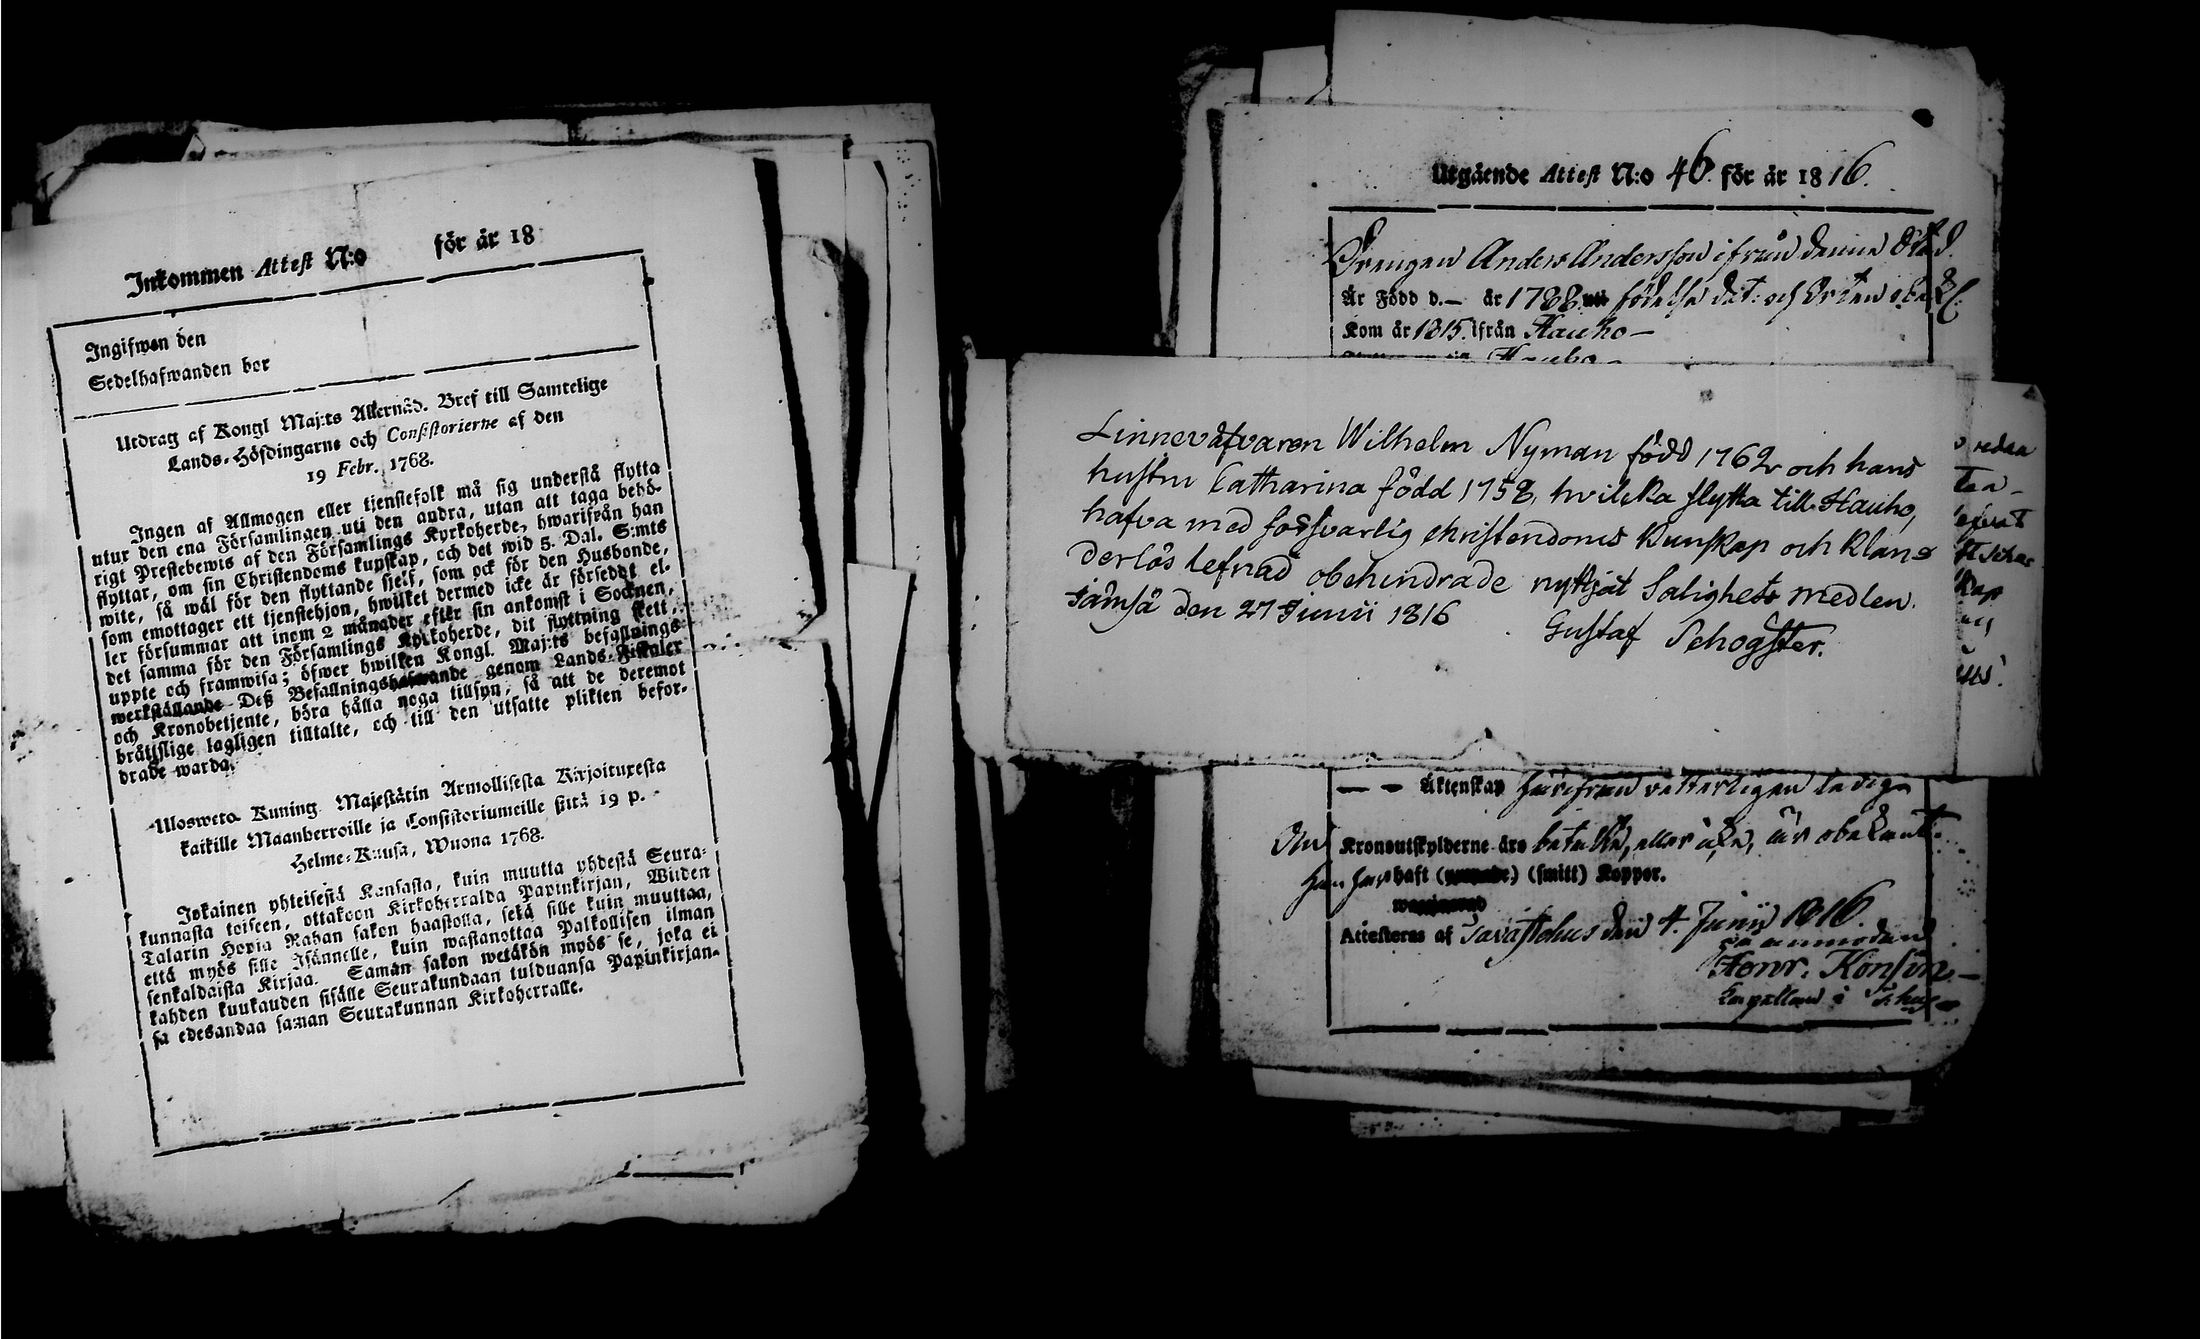 Inkommen Attest N:o för år 18
Ingifwen den
Sedelhafwanden bor
Utdrag af Kongl Maj:ts Allernåd. Bref till Samtelige
Lands-Höfdingarne och Consistorierne af den
19 Febr. 1768.
Ingen af Allmogen eller tjenstefolk må sig understå flytta
utur den ena Församlingen uti den andra, utan att taga behö-
rigt Prestebewis af den Församlings Kyrkoherde, hwarifrån han
flyttar, om sin Christendoms kunskap, och det wid 5. Dal. S:mts
wite, så wäl för den flyttande sjelf, som ock för den Husbonde,
som emottager ett tjenstehjon, hwilket dermed icke är försedt el-
ler försummar att inom 2 månader efter sin ankomst i Socknen,
det samma för den Församlings Kyrkoherde, dit flyttning skett,
uppte och framwisa; öfwer hwilken Kongl. Maj:ts befallnings
werkställande Deß Befallningshafwande genom Lands-Fiskaler
och Kronobetjente, böra hålla noga tillsyn, så att de deremot
bråttslige lagligen tilltalte, och till den utsatte plikten befor-
drade warda.
Ulosweto Kuning. Majestätin Armollisesta Kirjoituxesta
kaikille Maanherroille ja Consistoriumeille siitä 19 p.
Helme-Kuusa, Wuona 1768.
Jokainen yhteisestä Kansasta, kuin muutta yhdestä Seura-
kunnasta toiseen, ottakoon Kirkoherralda Papinkirjan, Wiiden
Talarin Hopia Rahan sakon haastolla, sekä sille kuin muuttaa,
että myös sille Isännelle, kuin wastanottaa Palkollisen ilman
senkaldaista Kirjaa. Saman sakon wetäkön myös se, joka ei
kahden kuukauden sisälle Seurakundaan tulduansa Papinkirjan-
sa edesandaa saman Seurakunnan Kirkoherralle.
Utgående Attest N:o 46. för år 1816.
Drengen Anders Andersson ifrån denna Stad.
Är Född d.— år 1788 uti födelse dat: och Orten obek:
Kom år 1815. ifrån Hauho —
Hauho —
Linnevåfvaren Wilhelm Nyman född 1762 och hans
hustru Catharina född 1758, hvilka flytta till Hauho,
hafva med forsvarlig christendoms kunskap och klan-
derlös lefnad obehindrade nyttjat Salighets medlen.
Jämsä den 27 Junii 1816
Gustaf Schogster.
— — Äktenskap härifrån veterligen ledig
Om Kronoutskylderne äro betalte, eller icke, är obekant.
han har haft (smitt) Koppor.
Attesteras af Tavastehus den 4. Junii 1816.